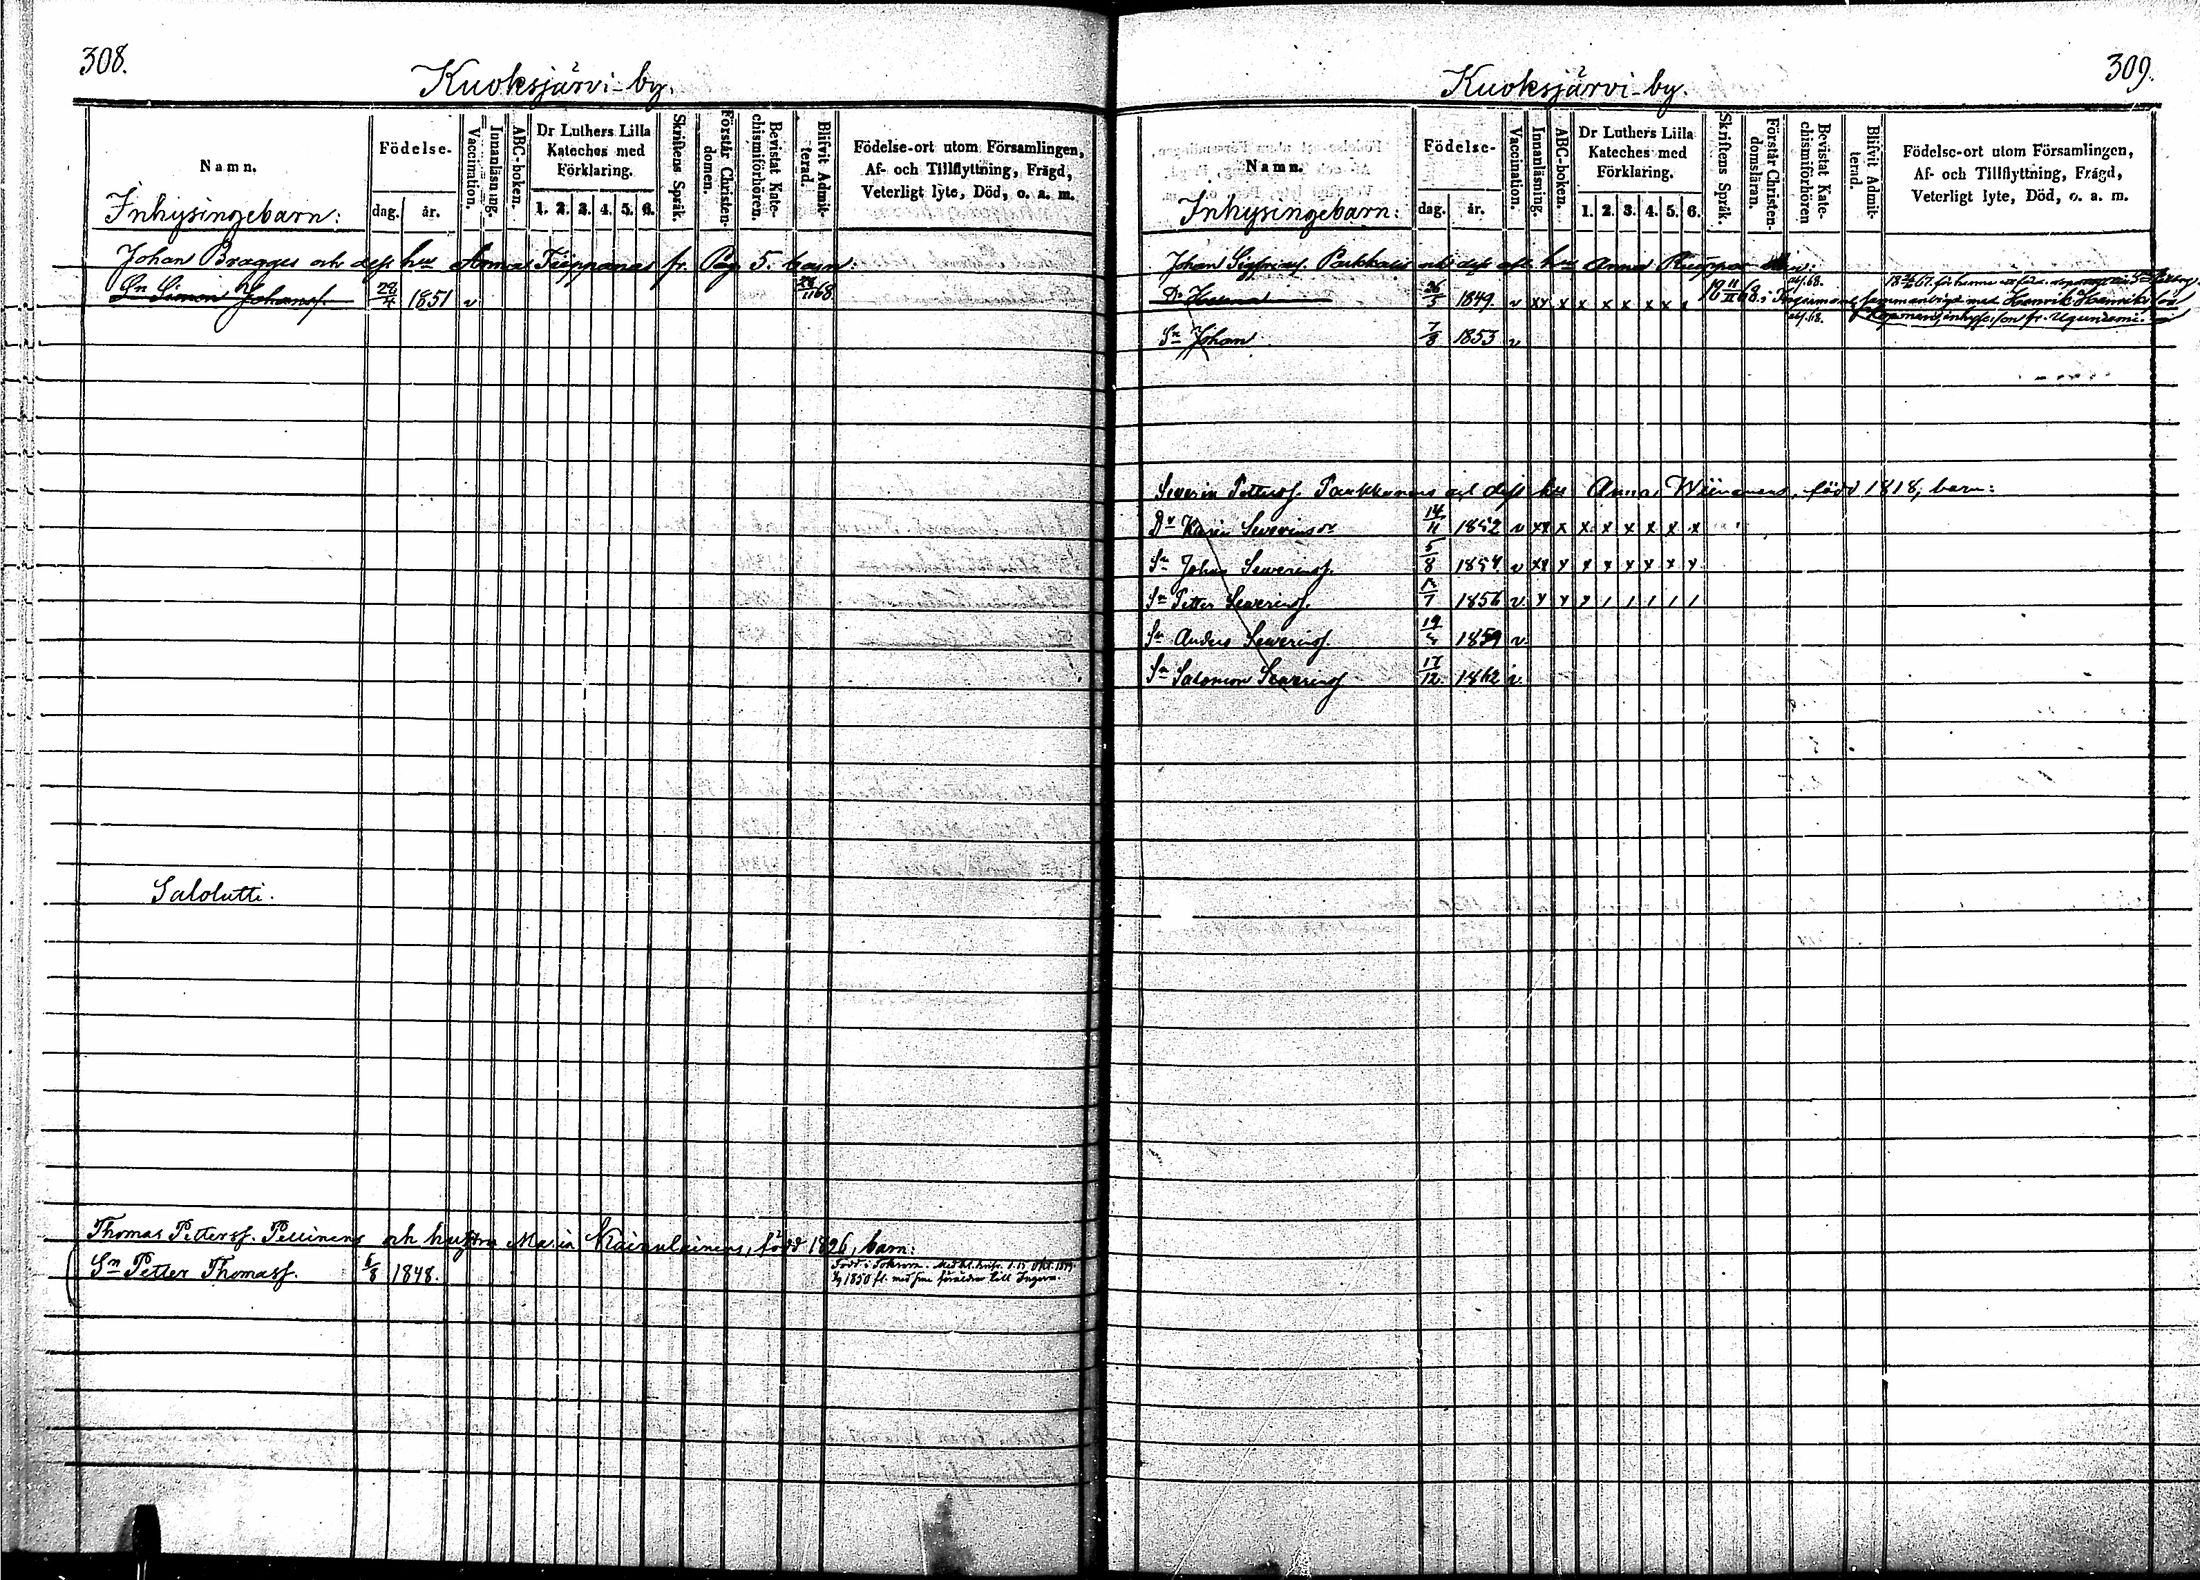 308.
Kuoksjärvi-by.
Namn.
Födelse-
dag. år.
Vaccination.
Innanläsning.
ABC-boken.
Dr Luthers Lilla Kateches med Förklaring.
1. 2. 3. 4. 5. 6.
Skriftens Språk.
Förstår Christendomen.
Bevistat Katechismiförhören.
Blifvit Admitterad.
Födelse-ort utom Församlingen,
Af- och Tillflyttning, Frägd,
Veterligt lyte, Död, o. a. m.
Inhysingebarn:
Johan Bragges och dess hu Anna fr. Pag 5. barn:
Sn Simon Johanss. 28/4 1851 v 68
Salolutti.
Thomas Petterss. Pellinens och hustru Maria Kainulainens, född 1826, barn:
Sn Petter Thomass. 6/8 1848. Född i
1850 fl. med sine föräldrar till Ingerm.
309.
Kuoksjärvi-by.
Namn.
Födelse-
dag. år.
Vaccination.
Innanläsning.
ABC-boken.
Dr Luthers Lilla Kateches med Förklaring.
1. 2. 3. 4. 5. 6.
Skriftens Språk.
Förstår Christendomsläran.
Bevistat Katechismiförhören
Blifvit Admitterad.
Födelse-ort utom Församlingen,
Af- och Tillflyttning, Frägd,
Veterligt lyte, Död, o. a. m.
Inhysingebarn:
Johan Sigfridss. och dess afl. hu Anna
1849. v xx x x x x x x sammanvigd med Henrik Henriksson
Sn Johan 7/8 1853 v
Severin Petterss. Paukkunens och dess hu Anna, född 1818, barn:
Dr Karin Severinsdr 14/11 1852 v xx x x x x x x x
Sn Johan Severinss. 5/8 1854 v xx x x x x x x x
Sn Petter Severinss. 1856 v x x x / / / / /
Sn Anders Severinss. 1859 v
Sn Salomon Severinss 17/12 1862 v